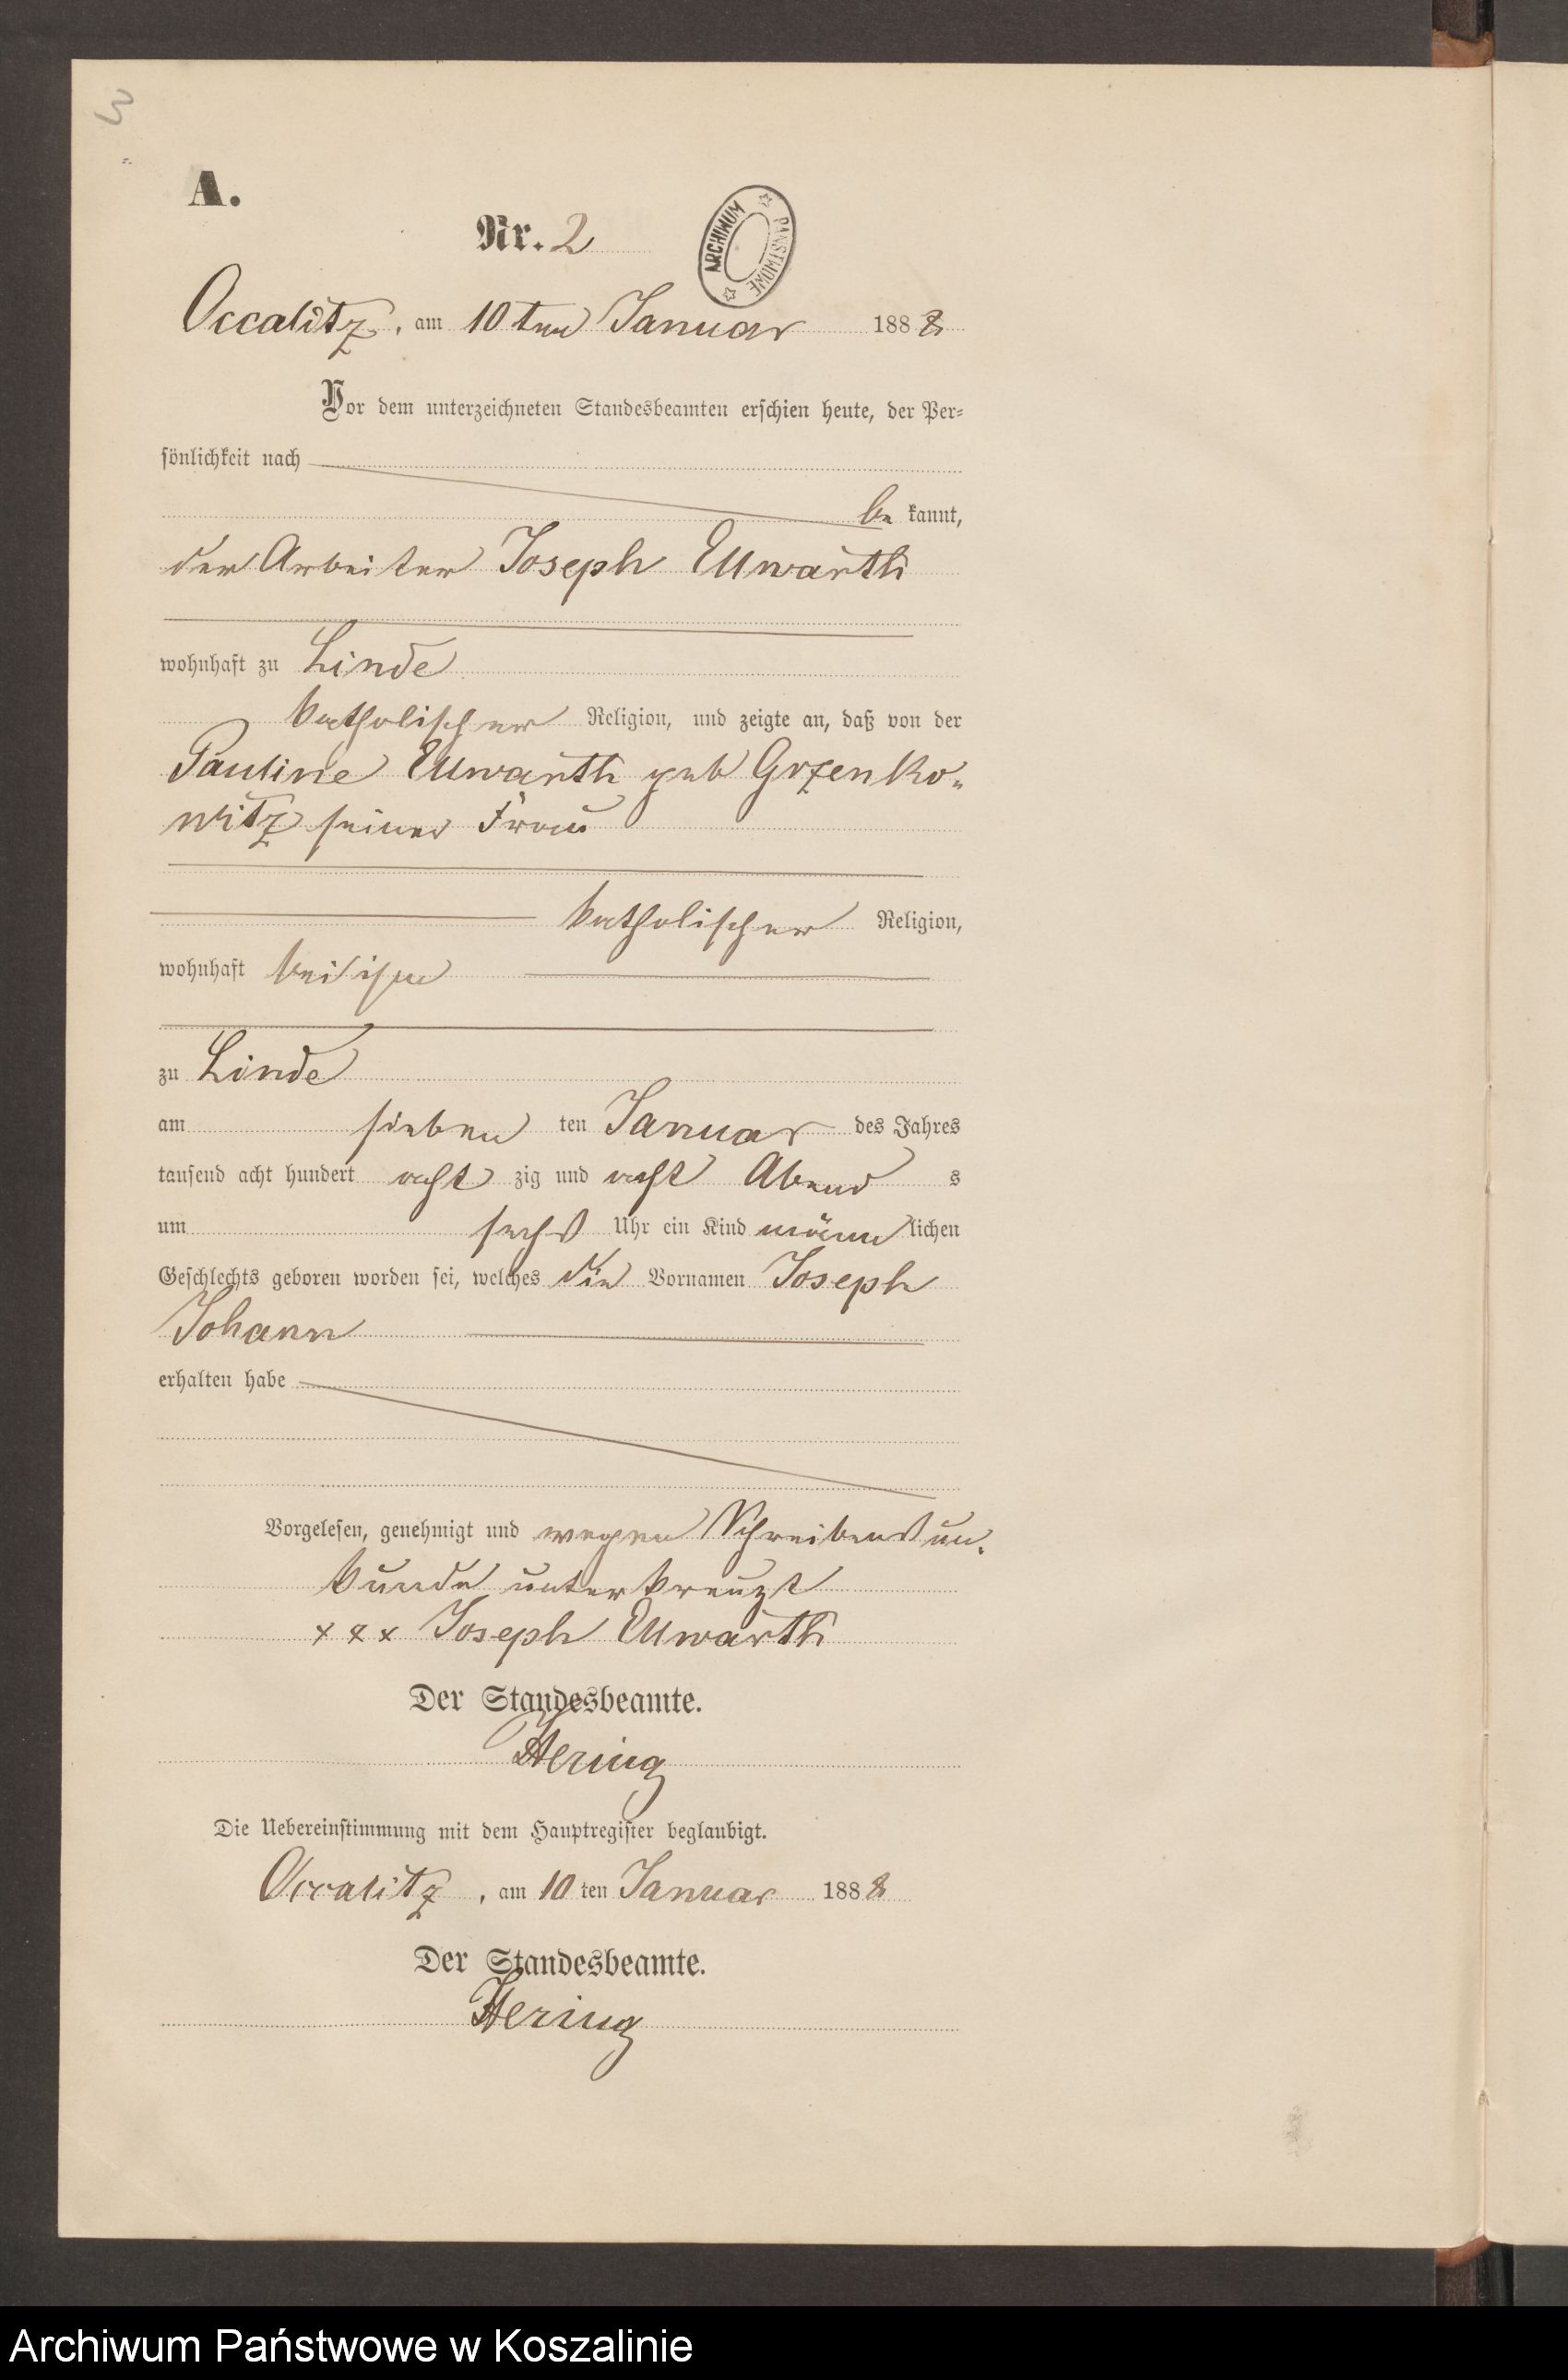 3
A.
Nr. 2
ARCHIWUM PAŃSTWOWE
Occalitz, am 10 ten Januar 1888
Vor dem unterzeichneten Standesbeamten erschien heute, der Per-
sönlichkeit nach
be kannt,
der Arbeiter Joseph Ellwarth
wohnhaft zu Linde
katholischer Religion, und zeigte an, daß von der
Pauline Ellwarth geb Grzenko-
witz seiner Frau
katholischer Religion,
wohnhaft bei ihm
zu Linde
am sieben ten Januar des Jahres
tausend acht hundert acht zig und acht Abend s
um sechs Uhr ein Kind männ lichen
Geschlechts geboren worden sei, welches die Vornamen Joseph
Johann
erhalten habe
Vorgelesen, genehmigt und wegen Schreibensun-
kunde unterkreuzt
xxx Joseph Ellwarth
Der Standesbeamte.
Hering
Die Uebereinstimmung mit dem Hauptregister beglaubigt.
Occalitz, am 10 ten Januar 1888
Der Standesbeamte.
Hering
Archiwum Państwowe w Koszalinie